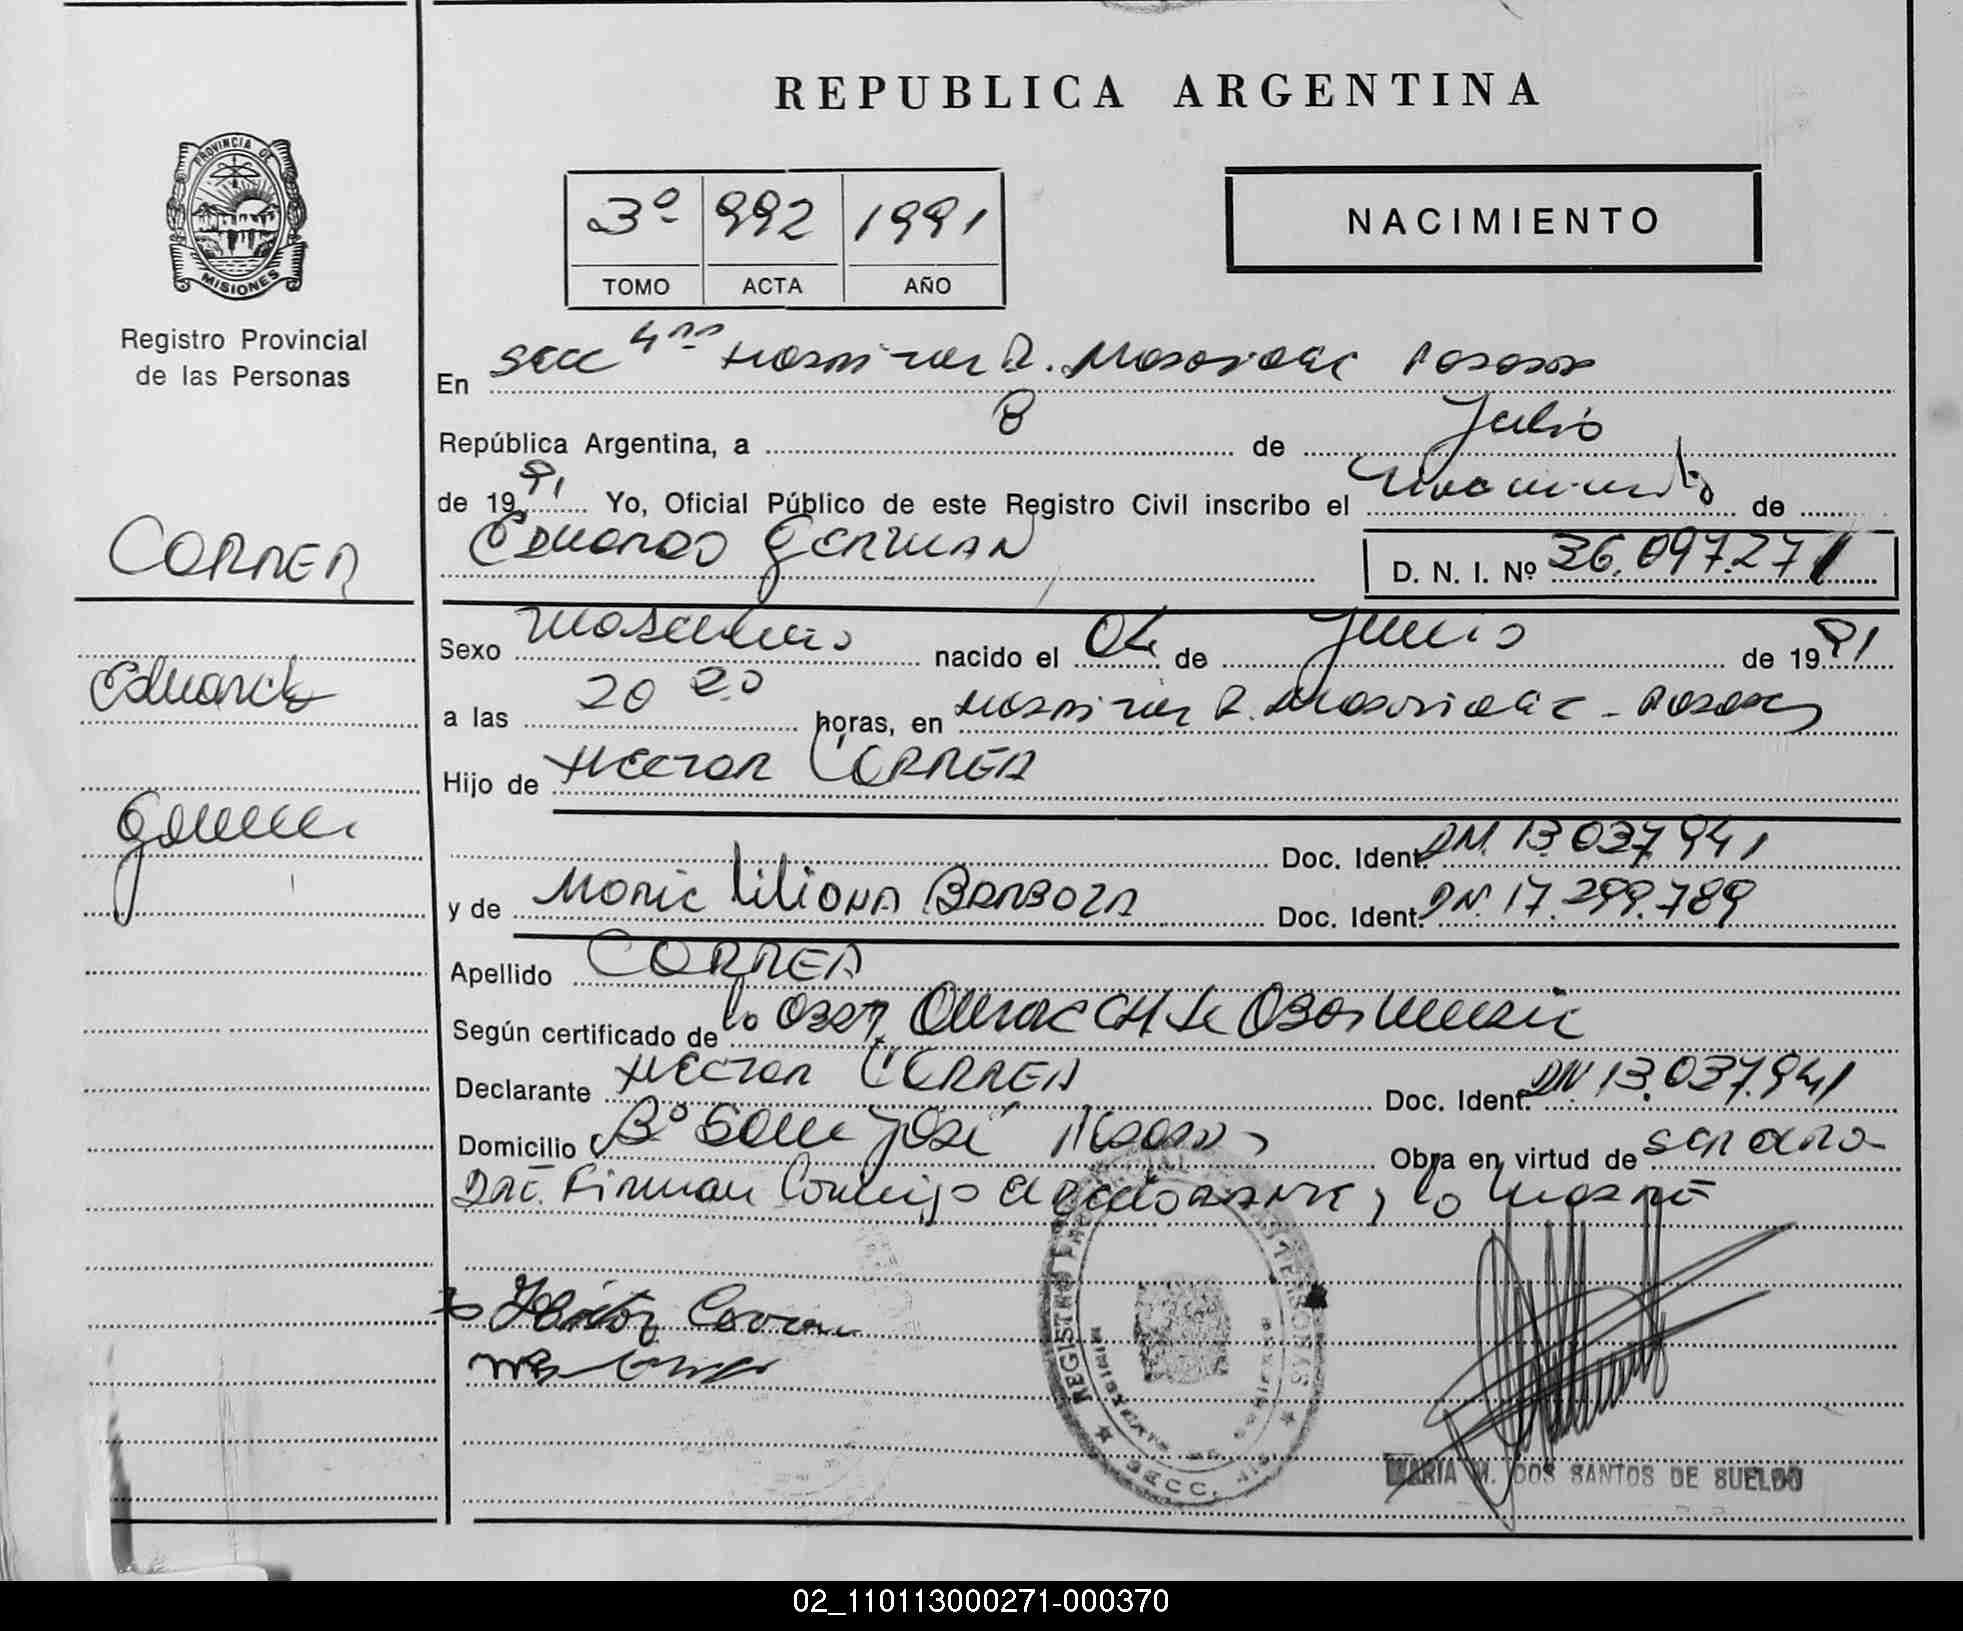 REPUBLICA ARGENTINA
PROVINCIA DE
MISIONES
Registro Provincial
de las Personas
3º 992 1991
TOMO ACTA AÑO
NACIMIENTO
En Secc 4ta Hospital R. Madariaga Posadas
República Argentina, a 8 de Julio
de 1991 Yo, Oficial Público de este Registro Civil inscribo el Nacimiento de
Eduardo German
D. N. I. Nº 36.097.271
CORREA
Eduardo
German
Sexo Masculino nacido el 04 de Junio de 1991
a las 20 20 horas, en Hospital R. Madariaga - Posadas
Hijo de Hector CORREA
Doc. Ident. DNI. 13.037.941
y de Maria Liliana BARBOZA Doc. Ident. DNI. 17.299.789
Apellido CORREA
Según certificado de la Obst.
Declarante Hector CORREA Doc. Ident. DNI 13.037.941
Domicilio Bº San José Posadas Obra en virtud de ser
Firman Conmigo el declarante y la Madre
Hector Correa
REGISTRO
SECC.
MARIA M. DOS SANTOS DE SUELDO
02_110113000271-000370